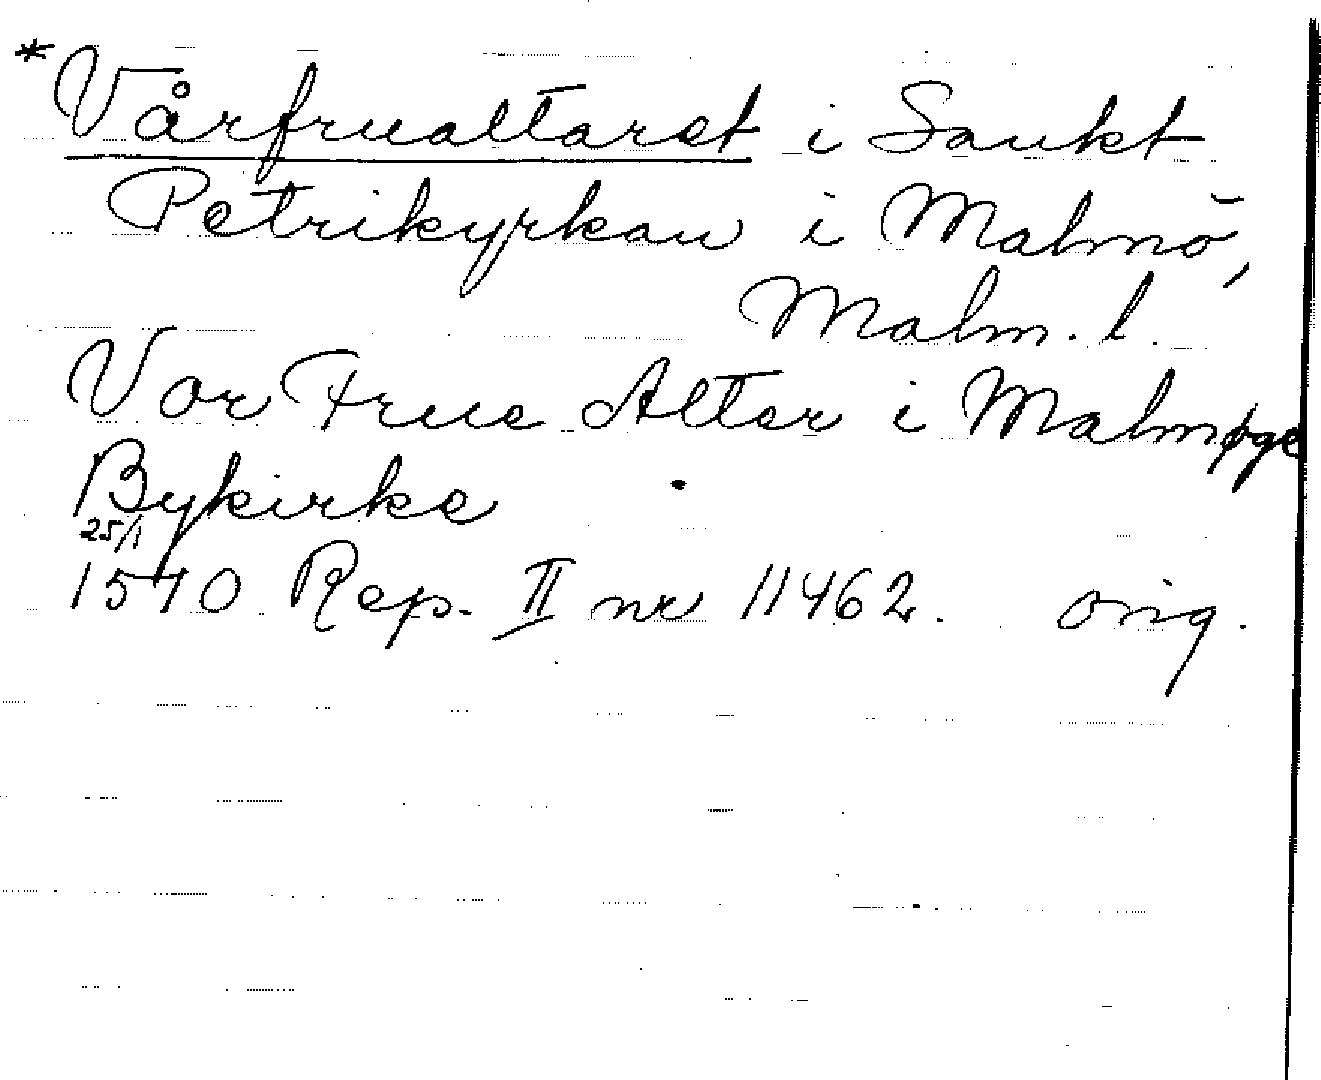 *Vårfrualtaret i Sankt
Petrikyrkan i Malmö,
Malm. l.
Vor Frue Alter i Malmøge
Bykirke
25/1
1510 Rep. II nr 11462. orig.